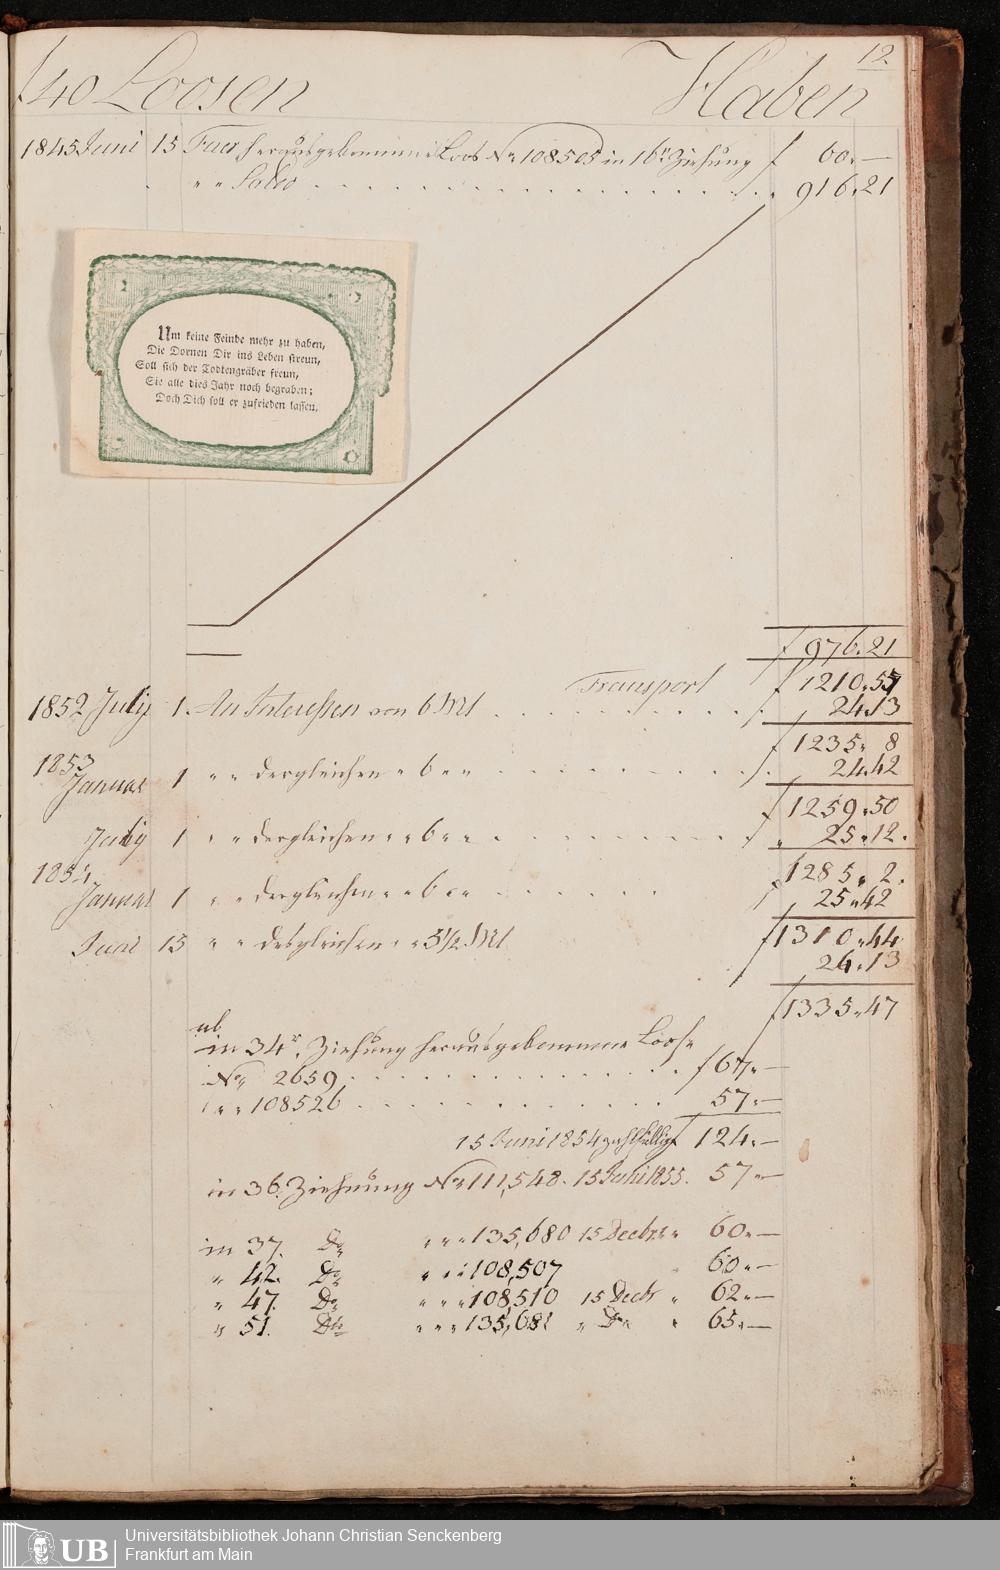 12
f 40 Loosen Haben
1845 Juni 15 Fuer herausgekommene Loos No 108505 in 16r Ziehung f 60 „ —
„ „ Saldo . . . . 916 „ 21
Um keine Feinde mehr zu haben,
Die Dornen Dir ins Leben streun,
Soll sich der Todtengräber freun,
Sie alle dies Jahr noch begraben;
Doch Dich soll er zufrieden lassen.
f 976 „ 21
Transport f 1210 „ 55
1852 July 1. An Interessen von 6 Mt . . . . 24 „ 13
f 1235 „ 8
1853
Januar 1 „ „ dergleichen „ 6 „ „ . . . . 24 „ 42
f 1259 „ 50
July 1 „ „ dergleichen „ „ 6 „ „ . . . . 25 „ 12.
1854 f 1285 „ 2.
Januar 1 „ „ dergleichen „ „ 6 „ „ . . . . 25 „ 42
f 1310 „ 44
Juni 15 „ „ desgleichen „ „ 5½ Mt
26 „ 13
f 1335 „ 47
ab
in 34r. Ziehung herausgekommene Loose
No 2659 . . . . f 67 „ —
„ „ 108526 . . . . 57 „ —
15 Juni 1854 zahlfällig f 124 „ —
in 36. Ziehung No 111,548. 15 Juni 1855. 57 „ —
in 37. Do „ „ „ 135,680 15 Decbr „ „ 60 „ —
„ 42. Do „ „ „ 108,507 60 „ —
„ 47. Do „ „ „ 108510 15 Decb „ 62 „ —
„ 51. Do „ „ „ 135,681 „ Do „ 65 „ —
UB
Universitätsbibliothek Johann Christian Senckenberg
Frankfurt am Main